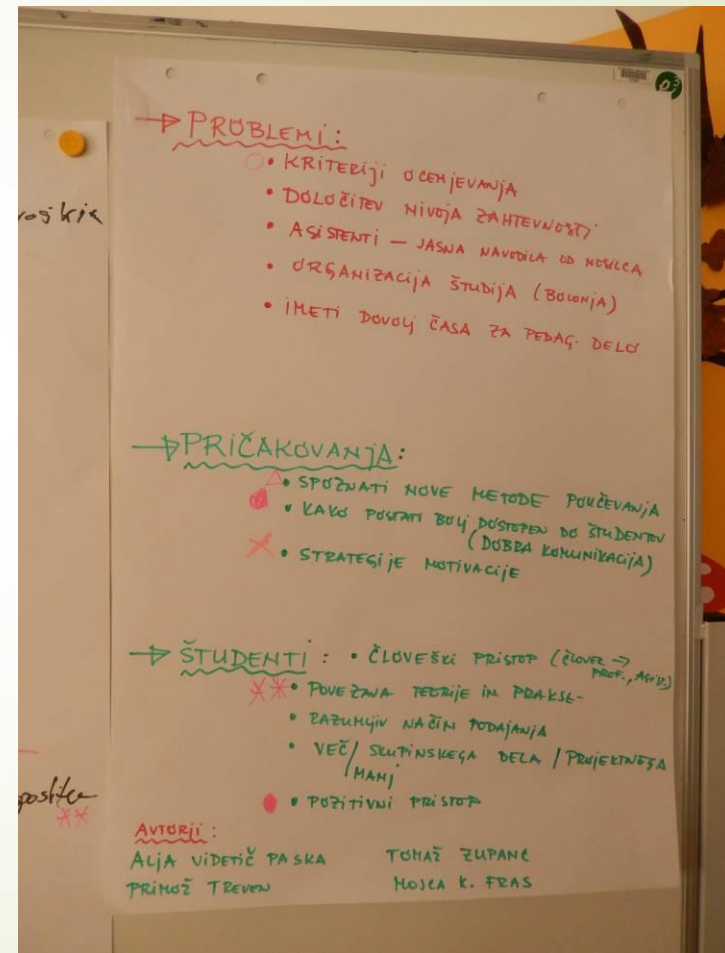 → PROBLEMI:
• KRITERIJI OCENJEVANJA
• DOLOČITEV NIVOJA ZAHTEVNOSTI
• ASISTENTI – JASNA NAVODILA OD NOSILCA
• ORGANIZACIJA ŠTUDIJA (BOLONJA)
• IMETI DOVOLJ ČASA ZA PEDAG. DELO
→ PRIČAKOVANJA:
• SPOZNATI NOVE METODE POUČEVANJA
• KAKO POSTATI BOLJ DOSTOPEN DO ŠTUDENTOV
(DOBRA KOMUNIKACIJA)
• STRATEGIJE MOTIVACIJE
→ ŠTUDENTI: • ČLOVEŠKI PRISTOP (ČLOVEK →
PROF., ASIST.)
• POVEZAVA TEORIJE IN PRAKSE
• RAZUMLJIV NAČIN PODAJANJA
• VEČ / SKUPINSKEGA DELA / PROJEKTNEGA
/ MANJ
• POZITIVNI PRISTOP
AVTORJI:
ALJA VIDETIČ PASKA TOMAŽ ZUPANC
PRIMOŽ TREVEN MOJCA K. FRAS